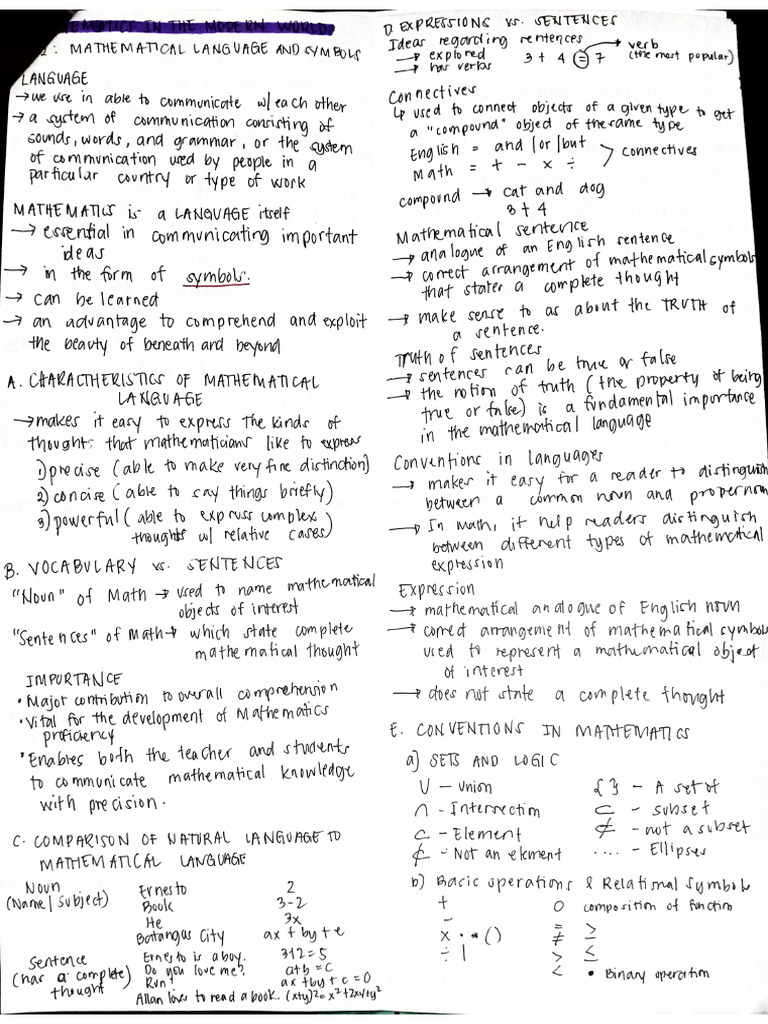 EMATICS IN THE MODERN WORLD
1: MATHEMATICAL LANGUAGE AND SYMBOLS
LANGUAGE
→ we use in able to communicate w/ each other
→ a system of communication consisting of
sounds, words, and grammar, or the system
of communication used by people in a
particular country or type of work
MATHEMATICS is a LANGUAGE itself
→ essential in communicating important
ideas
→ in the form of symbols.
→ can be learned
→ an advantage to comprehend and exploit
the beauty of beneath and beyond
A. CHARACTHERISTICS OF MATHEMATICAL
LANGUAGE
→ makes it easy to express the kinds of
thoughts that mathematicians like to express
1) precise (able to make very fine distinction)
2) concise (able to say things briefly)
3) powerful (able to express complex
thoughts w/ relative cases)
B. VOCABULARY vs. SENTENCES
"Noun" of Math → used to name mathematical
objects of interest
"Sentences" of Math → which state complete
mathematical thought
IMPORTANCE
• Major contribution to overall comprehension
• Vital for the development of Mathematics
proficiency
• Enables both the teacher and students
to communicate mathematical knowledge
with precision.
C. COMPARISON OF NATURAL LANGUAGE TO
MATHEMATICAL LANGUAGE
Noun
(Name/subject)
Ernesto 2
Book 3-2
He 3x
Batangas City ax + by + e
Sentence
(has a complete)
thought
Ernesto is a boy. 312=5
Do you love me? a+b = C
Run! ax + by + c = 0
Allan love to read a book. (x+y)²= x²+2xy+y²
D. EXPRESSIONS vs. SENTENCES
Ideas regarding sentences
→ explored
→ has verbs
3 + 4 = 7 → verb
(the most popular)
Connectives
↳ used to connect objects of a given type to get
a "compound" object of the same type
English = and/or/but
Math = + - × ÷
> connectives
compound → cat and dog
3 + 4
Mathematical sentence
→ analogue of an English sentence
→ correct arrangement of mathematical symbols
that states a complete thought
→ make sense to as about the TRUTH of
a sentence.
Truth of sentences
→ sentences can be true or false
→ the notion of truth (the property of being
true or false) is a fundamental importance
in the mathematical language
Conventions in languages
→ makes it easy for a reader to distinguish
between a common noun and proper noun
→ In math, it help readers distinguish
between different types of mathematical
expression
Expression
→ mathematical analogue of English noun
→ correct arrangement of mathematical symbols
used to represent a mathematical object
of interest
→ does not state a complete thought
E. CONVENTIONS IN MATHEMATICS
a) SETS AND LOGIC
U – union { } – A set of
∩ – Intersection ⊂ – subset
⊂ – Element ⊄ – not a subset
⊄ – Not an element .... – Ellipses
b) Basic operations & Relational Symbols
+ O composition of function
- = ≥
x · * () ≠ ≤
÷ | > ≤
< • Binary operation